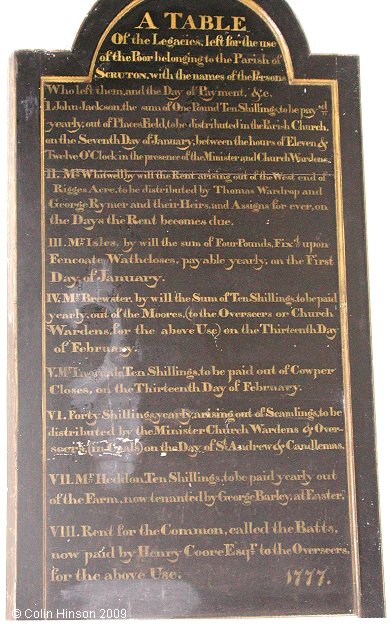 A TABLE
Of the Legacies, left for the use
of the Poor belonging to the Parish of
SCRUTON, with the names of the Persons
Who left them, and the Day of Payment, &c.
I. John Jackson, the sum of One Pound Ten Shillings, to be payed
yearly, out of Places Field, to be distributed in the Parish Church,
on the Seventh Day of January, between the hours of Eleven &
Twelve O'Clock, in the presence of the Minister and Church Wardens.
II. Mr Whitwell, by will the Rent arising out of the West end of
Rigges Acre, to be distributed by Thomas Wardrop and
George Rymer and their Heirs, and Assigns for ever, on
the Days the Rent becomes due.
III. Mr Isles, by will the sum of Four Pounds, Fix'd upon
Fencoate Wathcloses, payable yearly, on the First
Day of January.
IV. Mr Brewster, by will the Sum of Ten Shillings, to be paid
yearly, out of the Moores, (to the Overseers or Church
Wardens, for the above Use) on the Thirteenth Day
of February.
V. Mr Ten Shillings, to be paid out of Cowper
Closes, on the Thirteenth Day of February.
VI. Forty Shillings, yearly, arising out of Scamlings, to be
distributed by the Minister Church Wardens & Over-
seers, (in Coals) on the Day of St Andrew & Candlemas.
VII. Mr Heddon, Ten Shillings, to be paid yearly out
of the Farm, now tenanted by George Barley, at Easter.
VIII. Rent for the Common, called the Batts,
now paid by Henry Coore Esqr. to the Overseers,
for the above Use. 1777.
© Colin Hinson 2009